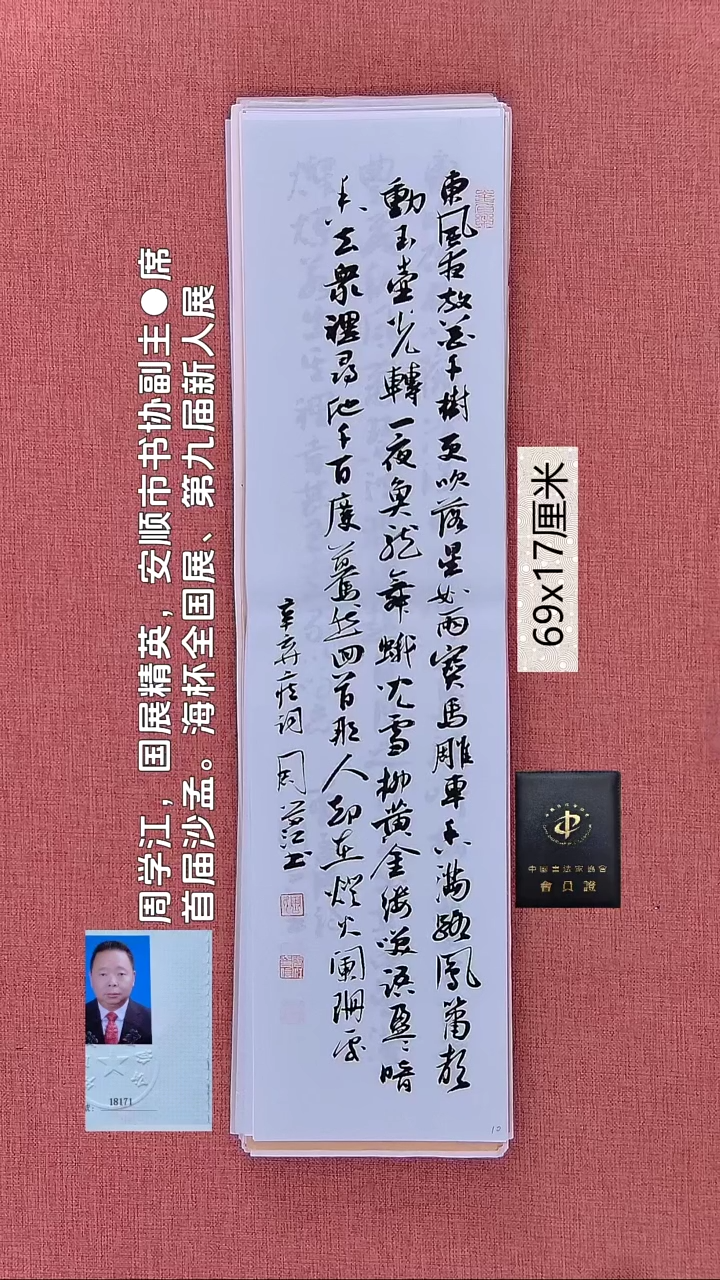 東風夜放花千樹更吹落星如雨寶馬雕車香滿路鳳簫聲
動玉壺光轉一夜魚龍舞蛾兒雪柳黃金縷笑語盈盈暗
香去衆裡尋他千百度驀然回首那人却在燈火闌珊處
辛弃疾词 周学江书
周学江，国展精英，安顺市书协副主●席
首届沙孟。海杯全国展、第九届新人展
69x17厘米
會員證
18171
10